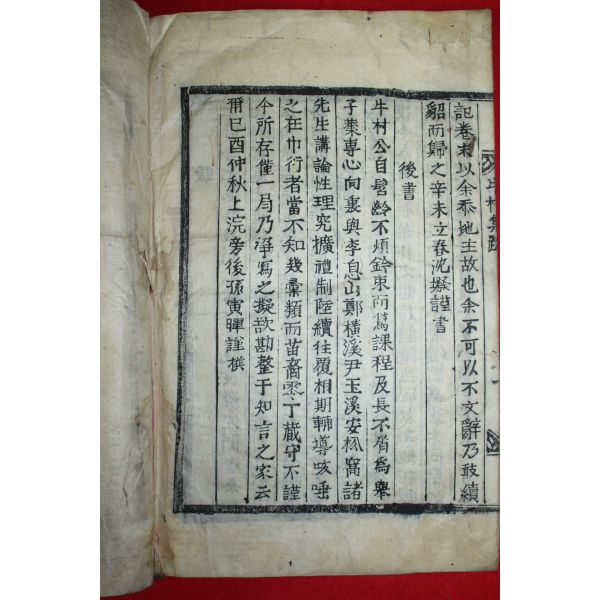 記卷末以余忝地主故也余不可以不文辭乃敢續
貂而歸之辛未立春沈 謹書
後書
牛村公自髫齡不煩鈴束而篤課程及長不屑爲擧
子業專心向裏與李息山鄭橫溪尹玉溪安松窩諸
先生講論性理究擴禮制陸續往覆相期輔導咳唾
之在巾衍者當不知幾彙類而苗裔零丁藏守不謹
今所存僅一局乃謄寫之擬欲勘整于知言之家云
爾巳酉仲秋上浣旁後孫寅暉謹撰
村集跋